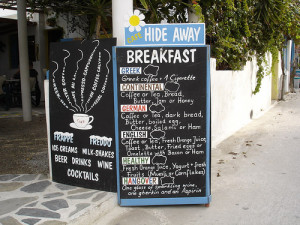 CAFE
HIDE AWAY
BREAKFAST
GREEK
Greek coffee + 1 Cigarette
CONTINENTAL
Coffee or Tea, Bread,
Butter, Jam or Honey
GERMAN
Coffee or Tea, dark bread,
Butter, boiled egg,
Cheese, Salami or Ham
ENGLISH
Coffee or Tea, Fresh Orange Juice
Toast, Butter, Fried eggs or
Omelette with Bacon or Ham
HEALTHY
Fresh Orange Juice, Yogurt + fresh
Fruits (Muesli or Corn Flakes)
HANGOVER
One glass of sparkling wine,
one gherkin and an Aspirin
FRAPPE FREDDO
ICE-CREAMS MILK-SHAKES
BEER DRINKS WINE
COCKTAILS